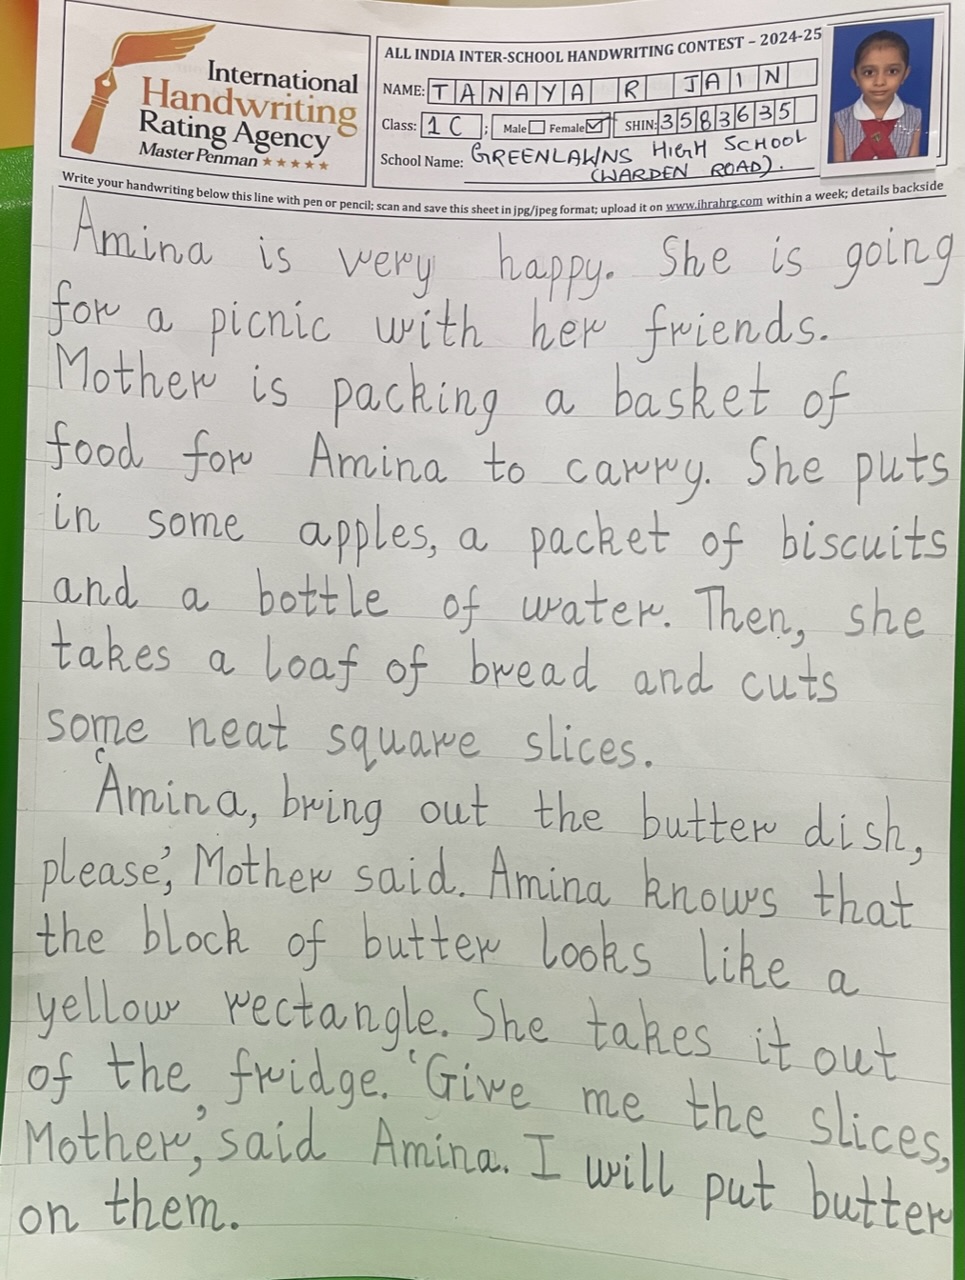 International
Handwriting
Rating Agency
Master Penman ★★★★★
ALL INDIA INTER-SCHOOL HANDWRITING CONTEST – 2024-25
NAME: TANAYA R JAIN
Class: 1 C ; Male ☐ Female ☑ SHIN: 3583635
School Name: GREENLAWNS HIGH SCHOOL
(WARDEN ROAD).
Write your handwriting below this line with pen or pencil; scan and save this sheet in jpg/jpeg format; upload it on www.ihrahrg.com within a week; details backside
Amina is very happy. She is going
for a picnic with her friends.
Mother is packing a basket of
food for Amina to carry. She puts
in some apples, a packet of biscuits
and a bottle of water. Then, she
takes a loaf of bread and cuts
some neat square slices.
‘Amina, bring out the butter dish,
please’, Mother said. Amina knows that
the block of butter looks like a
yellow rectangle. She takes it out
of the fridge. ‘Give me the slices,
Mother’, said Amina. I will put butter
on them.